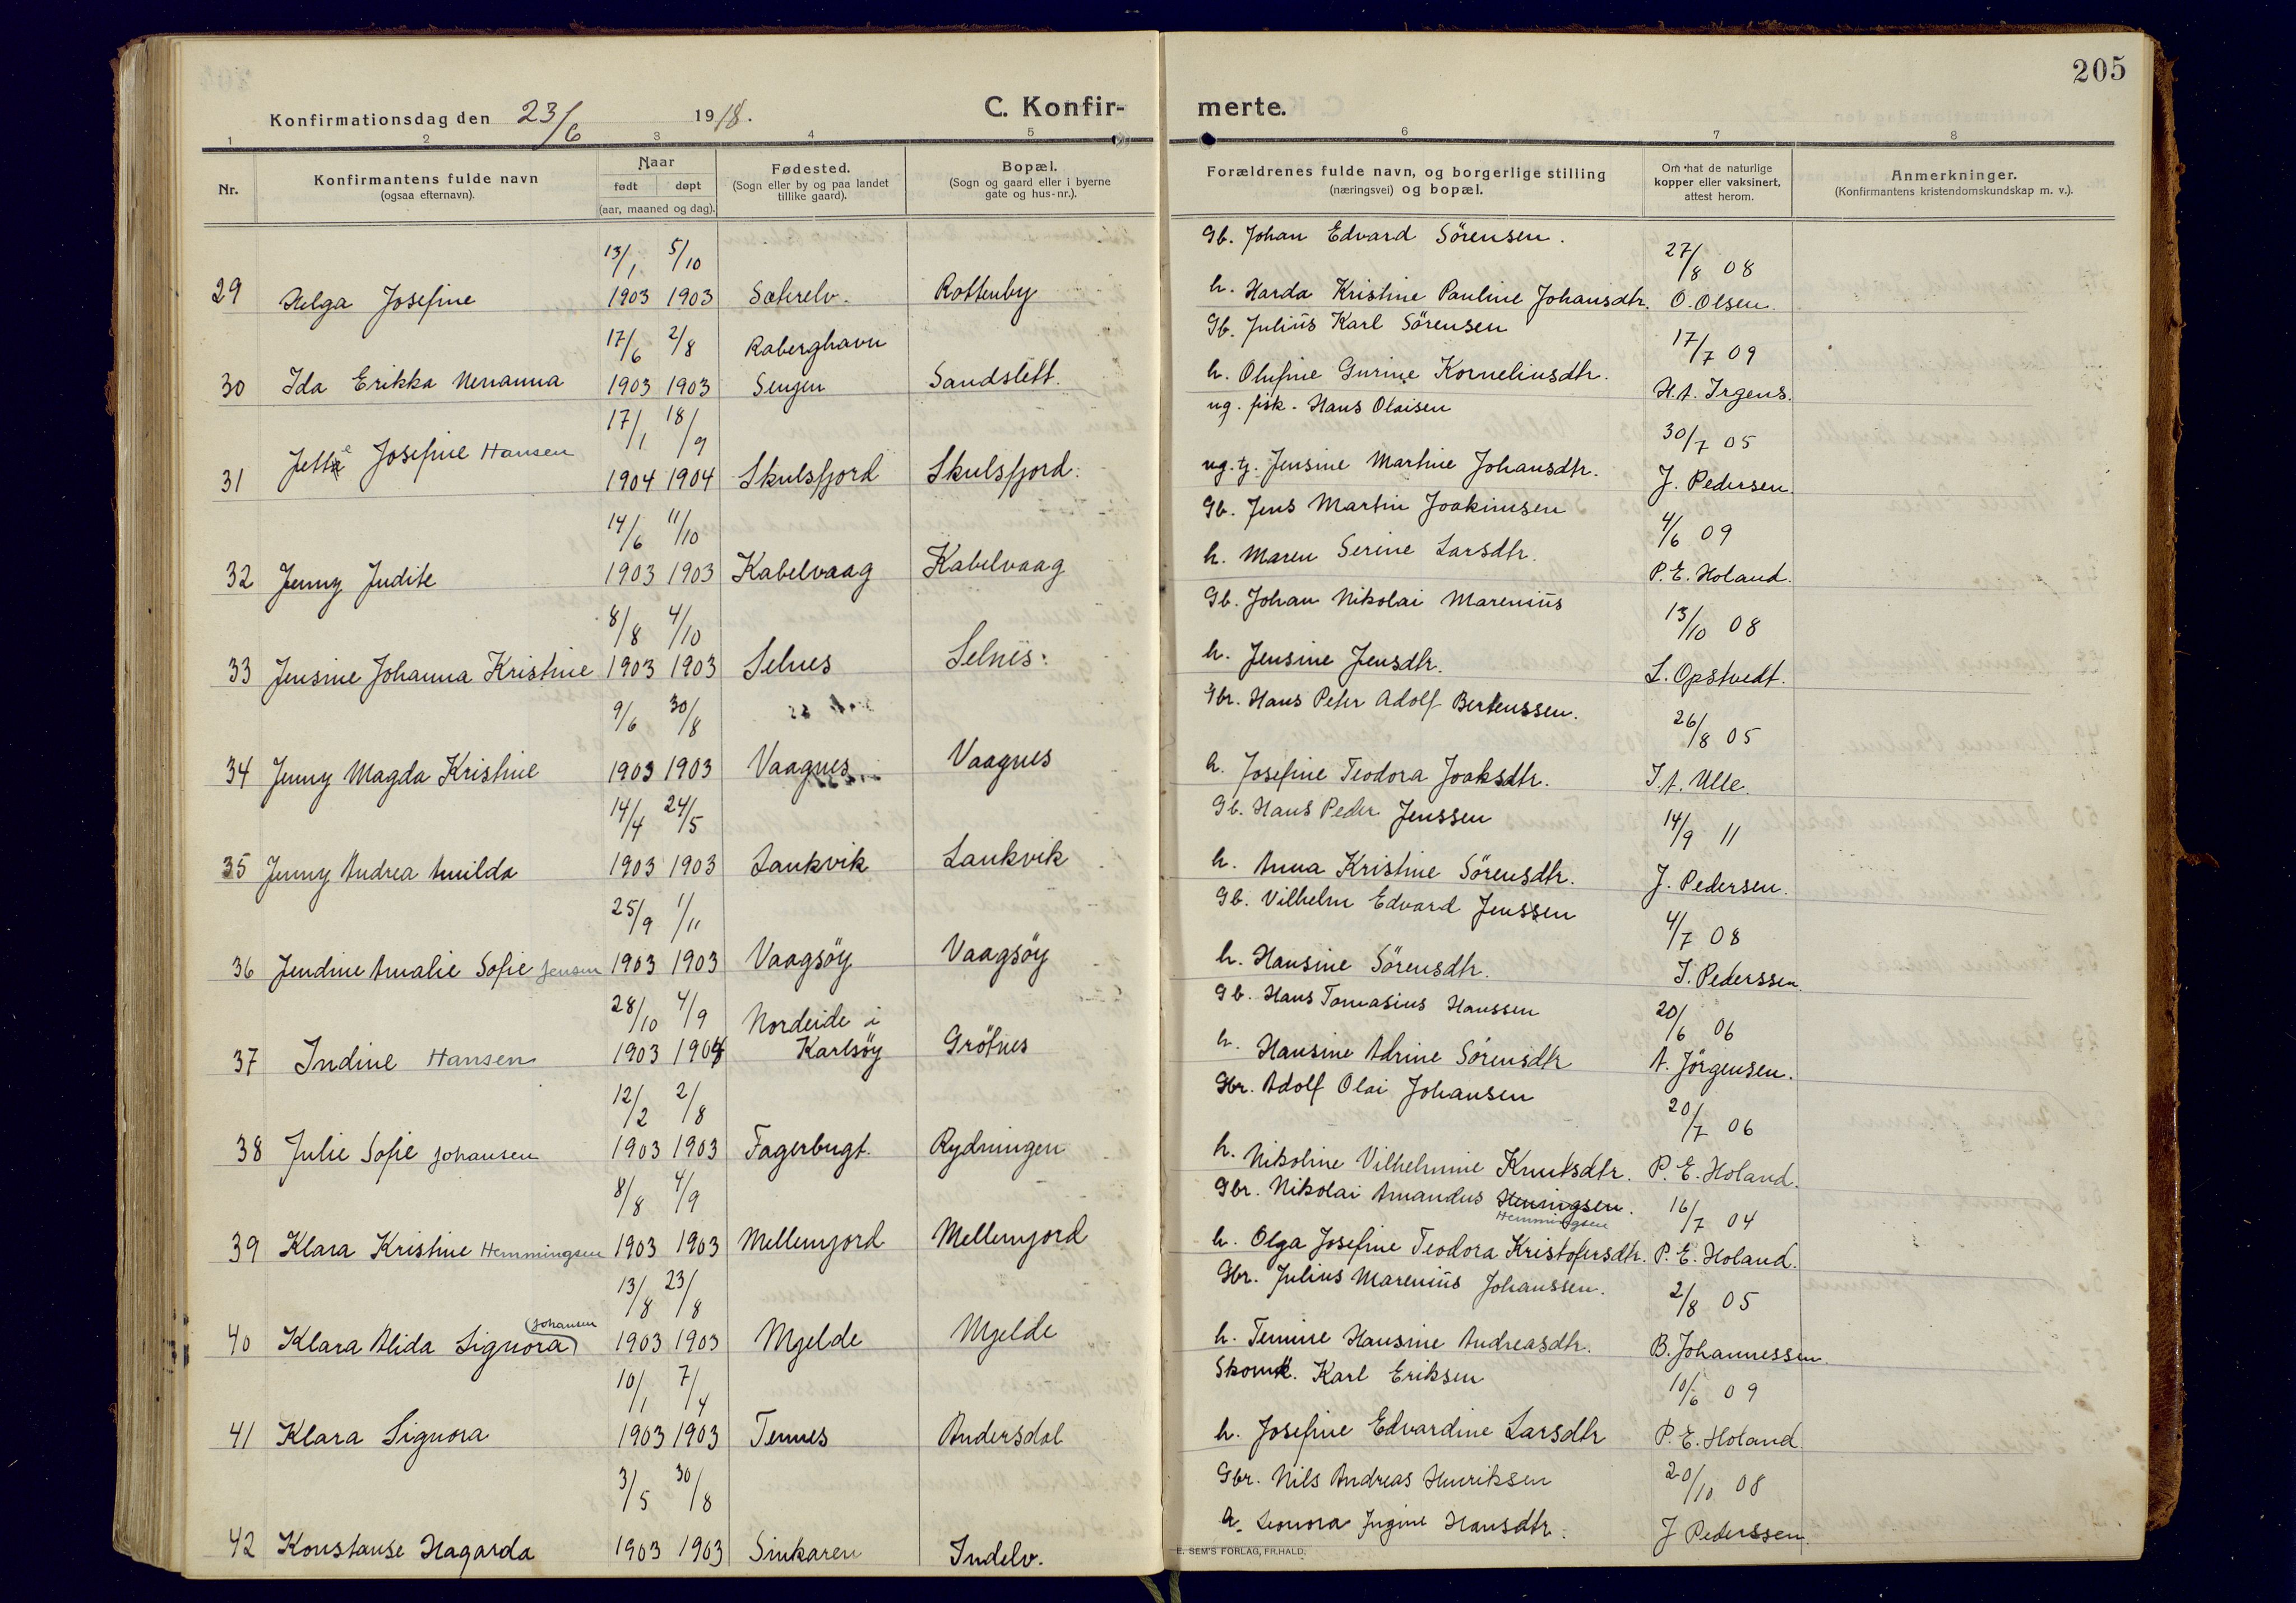 205
Konfirmationsdag den 23/6 1918.
C. Konfir-
merte.
1 2 3 4 5 6 7 8
Nr.
Konfirmantens fulde navn
(ogsaa efternavn).
Naar
født døpt
(aar, maaned og dag).
Fødested.
(Sogn eller by og paa landet
tillike gaard).
Bopæl.
(Sogn og gaard eller i byerne
gate og hus-nr.).
Forældrenes fulde navn, og borgerlige stilling
(næringsvei) og bopæl.
Om hat de naturlige
kopper eller vaksinert,
attest herom.
Anmerkninger.
(Konfirmantens kristendomskundskap m. v.).
13/1 5/10 Gb. Johan Edvard Sörensen. 27/8 08
29 Helga Josefine 1903 1903 Sæterelv. Rottenby h. Harda Kristine Pauline Johansdtr. O. Olsen.
17/6 2/8 Raberghavn Gb. Julius Karl Sörensen 17/7 09
30 Ida Erikka Nenanna 1903 1903 Senjen Sandslett. h. Olufine Gurine Korneliusdtr. H.A. Irgens.
17/1 18/9 ug. fisk. Hans Olaisen 30/7 05
31 Jette Josefine Hansen 1904 1904 Skulsfjord Skulsfjord. ug. tj. Jensine Martine Johansdtr. J. Pedersen.
14/6 11/10 Gb. Jens Martin Joakimsen 4/6 09
32 Jenny Judite 1903 1903 Kabelvaag Kabelvaag h. Maren Serine Larsdtr. P. E. Holand.
8/8 4/10 Gb. Johan Nikolai Marenius 13/10 08
33 Jensine Johanna Kristine 1903 1903 Selnes Selnes. h. Jensine Jensdtr. L. Opstvedt.
9/6 30/8 Gbr. Hans Peter Adolf Berteussen. 26/8 05
34 Jenny Magda Kristine 1903 1903 Vaagnes Vaagnes h. Josefine Teodora Joaksdtr. J. A. Ulle.
14/4 24/5 Gb. Hans Peder Jenssen 14/9 11
35 Jenny Andrea Amilda 1903 1903 Lankvik Lankvik h. Anna Kristine Sörensdtr. J. Pedersen.
25/9 1/11 Gb. Vilhelm Edvard Jenssen 4/7 08
36 Jendine Amalie Sofie Jensen 1903 1903 Vaagsöy Vaagsöy h. Hansine Sörensdtr. J. Pederssen.
28/10 4/9 Nordeide i Gb. Hans Tomasius Hanssen 20/6 06
37 Indine Hansen 1903 1904 Karlsöy Grötnes h. Hansine Adrine Sörensdtr A. Jörgensen.
12/2 2/8 Gbr. Adolf Olai Johansen 20/7 06
38 Julie Sofie Johansen 1903 1903 Fagerbugt. Rydningen h. Nikoline Vilhelmine Knutsdtr. P. E. Holand.
8/8 4/9 Gbr. Nikolai Amandus Heningsen. 16/7 04
Hemmingsen
39 Klara Kristine Hemmingsen 1903 1903 Mellemjord Mellemjord h. Olga Josefine Teodora Kristofersdtr. P. E. Holand.
13/8 23/8 Gbr. Julius Marenius Johanssen. 2/8 05
(Johansen
40 Klara Alida Signora) 1903 1903 Mjelde Mjelde h. Temine Hansine Andreasdtr. B. Johannessen.
10/1 7/4 Skom. Karl Eriksen 10/6 09
41 Klara Signora 1903 1903 Tennes Andersdal h. Josefine Edvardine Larsdtr P. E. Holand
3/5 30/8 Gbr. Nils Andreas Henriksen 20/10 08
42 Konstanse Hagarda 1903 1903 Sinkaren Indelv. h. Leonora Jugine Hansdtr. J Pederssen.
E. SEM'S FORLAG, FR.HALD.